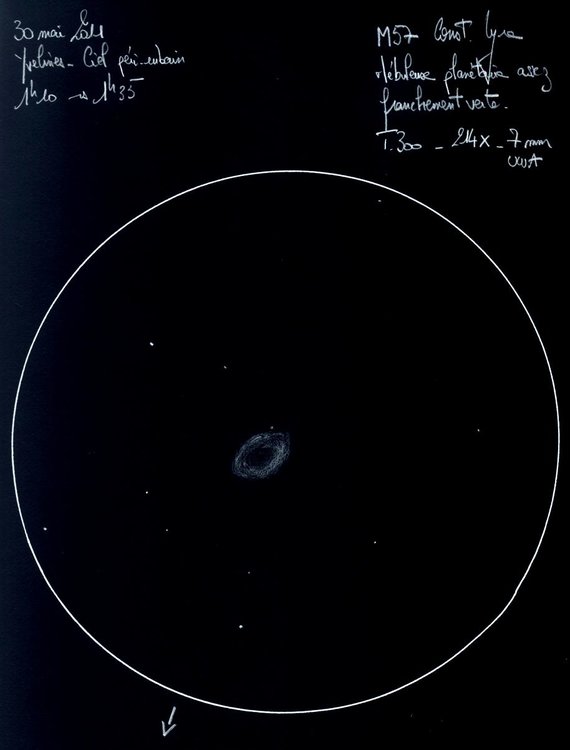 30 mai
Yvelines - Ciel péri-urbain
1h10 → 1h35
M57 Const. Lyra
Nébuleuse planétaire assez
franchement verte.
T.300 - 214x - 7mm
UWA